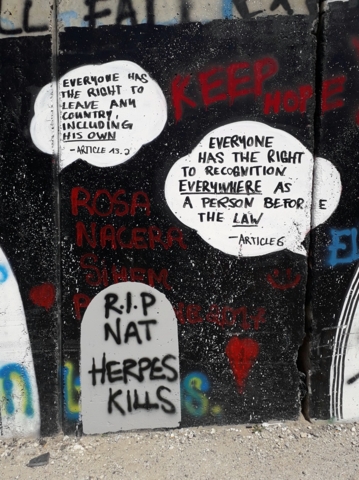 LL FALL
KEEP
HOPE
EVERYONE HAS
THE RIGHT TO
LEAVE ANY
COUNTRY,
INCLUDING
HIS OWN
- ARTICLE 13.2
EVERYONE
HAS THE RIGHT
TO RECOGNITION
EVERYWHERE AS
A PERSON BEFORE
THE LAW
- ARTICLE 6
ROSA
NACERA
SIHEM
R.I.P
NAT
HERPES
KILLS